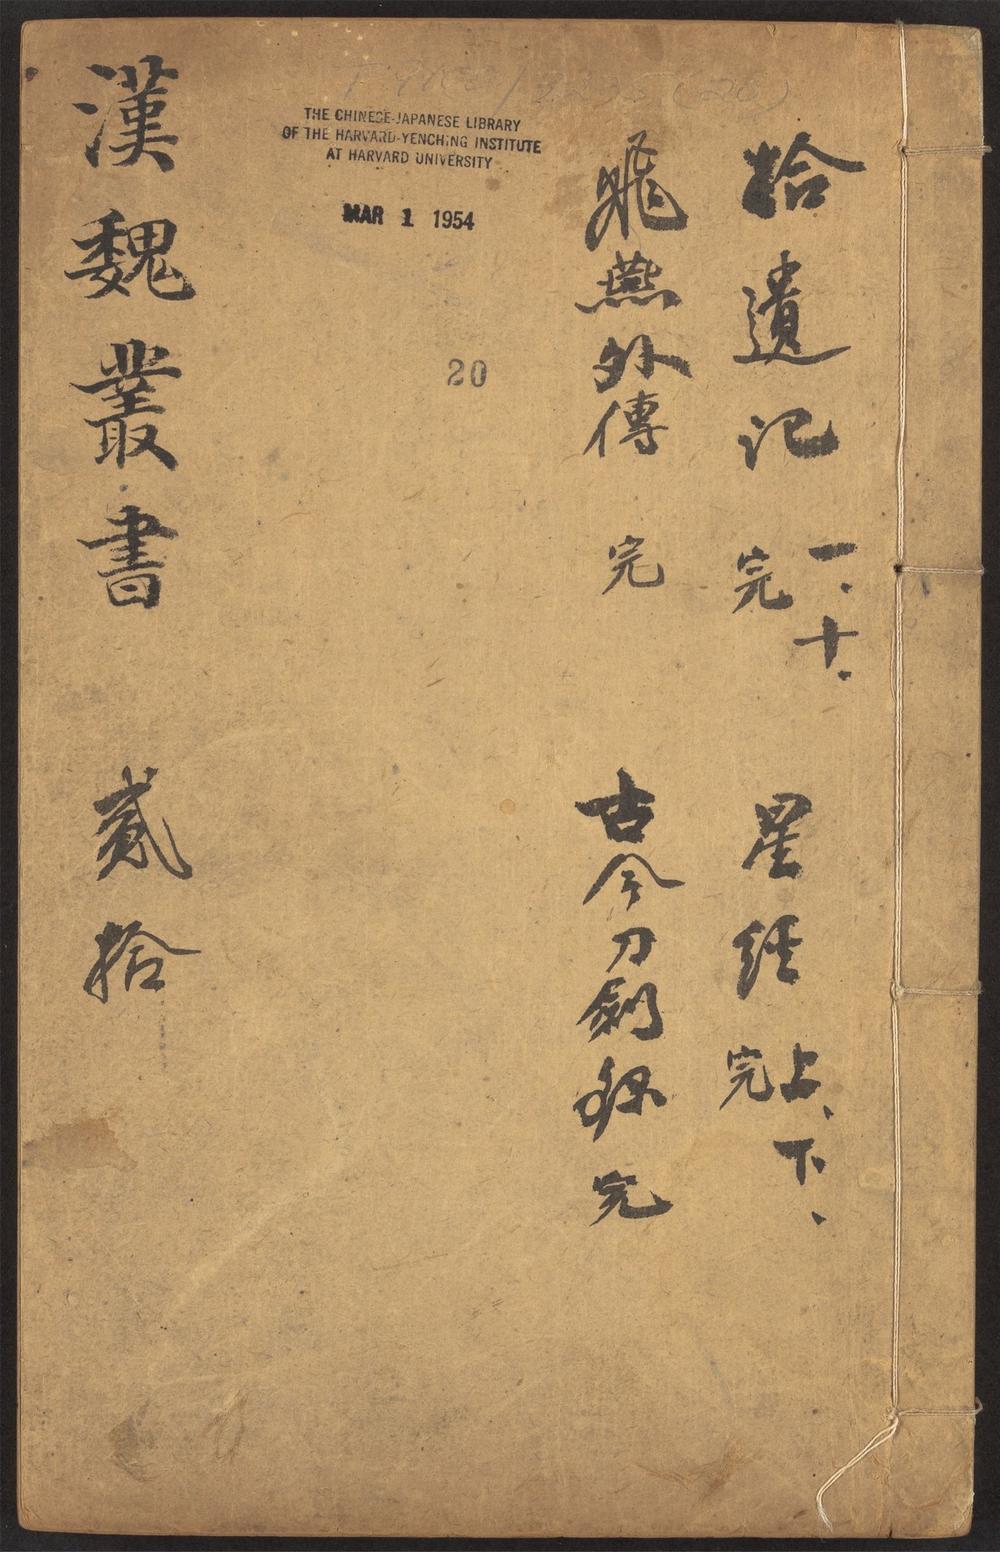 拾遺記 一、十、完 星經 上、下、完
飛燕外傳 完 古今刀劍錄 完
THE CHINESE-JAPANESE LIBRARY
OF THE HARVARD-YENCHING INSTITUTE
AT HARVARD UNIVERSITY
MAR 1 1954
20
漢魏叢書 貳拾